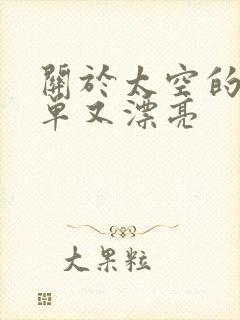 關於太空的
單又漂亮
大果粒